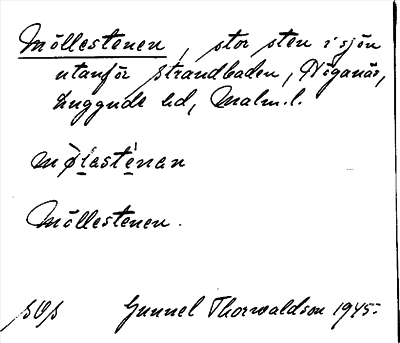 Möllestenen, stor sten i sjön
utanför strandbaden, Höganäs,
Luggude hd, Malm.l.
møl̥asténan
Möllestenen.
sOs Gunnel Thorwaldson 1945.